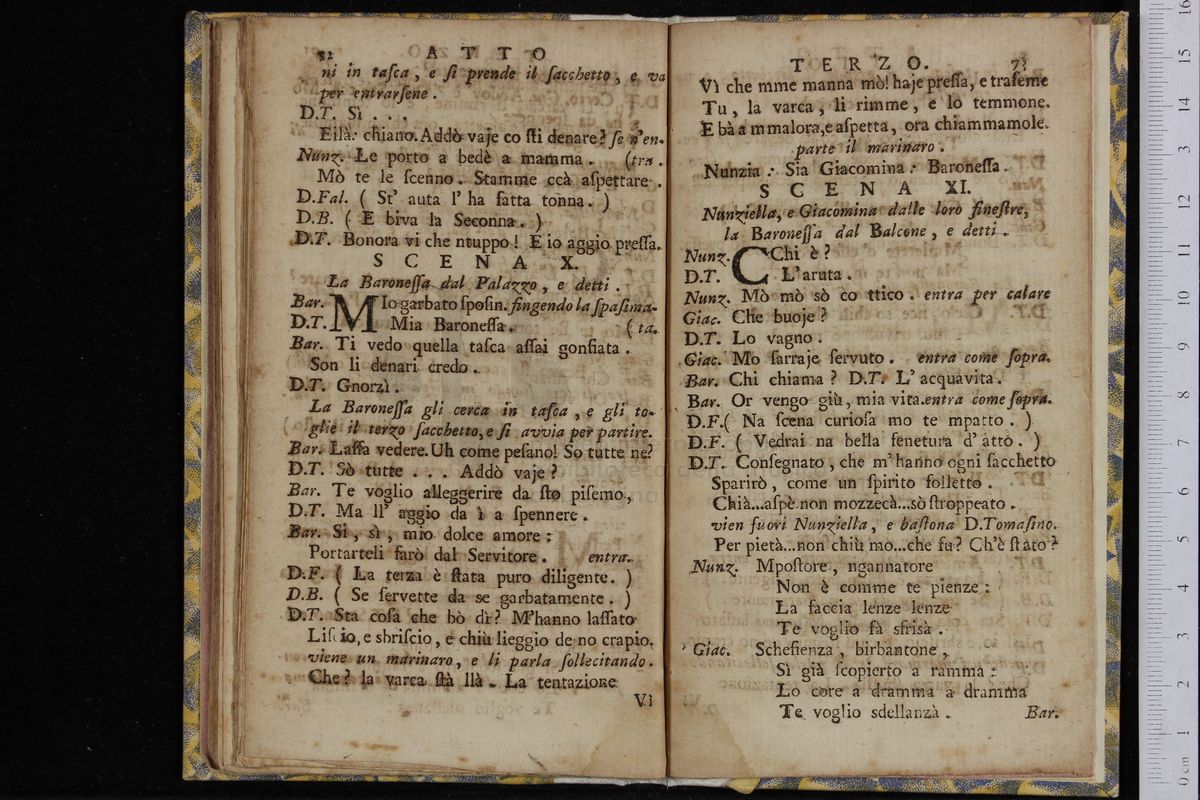 52 ATTO
ni in taſca, e ſi prende il ſacchetto, e va
per entrarſene.
D.T. Sì . . .
Eilà: chiano. Addò vaje co ſti denare? ſe n'en-
Nunz. Le porto a bedè a mamma. (tra.
Mò te le ſcenno. Stamme ccà aſpettare.
D.Fal. ( St' auta l' ha fatta tonna. )
D.B. ( E biva la Seconna. )
D.T. Bonora vi che ntuppo! E io aggio preſſa.
SCENA X.
La Baroneſſa dal Palazzo, e detti.
Bar. MIo garbato ſpoſin. fingendo la ſpaſima-
D.T. Mia Baroneſſa. (ta.
Bar. Ti vedo quella taſca aſſai gonfiata.
Son li denari credo.
D.T. Gnorzì.
La Baroneſſa gli cerca in taſca, e gli to-
glie il terzo ſacchetto, e ſi avvia per partire.
Bar. Laſſa vedere. Uh come peſano! So tutte ne?
D.T. Sò tutte . . . Addò vaje?
Bar. Te voglio alleggerire da ſto piſemo,
D.T. Ma ll' aggio da ì a ſpennere.
Bar. Si, sì, mio dolce amore:
Portarteli farò dal Servitore. entra.
D.F. ( La terza è ſtata puro diligente. )
D.B. ( Se ſervette da ſe garbatamente. )
D.T. Sta coſa che bò dì? M'hanno laſſato
Liſcio, e sbriſcio, e chiù lieggio de no crapio.
viene un marinaro, e li parla ſollecitando.
Che? la varca ſtà llà. La tentazione
Vì
TERZO. 73
Vì che mme manna mò! haje preſſa, e traſeme
Tu, la varca, li rimme, e lo temmone.
E bà a mmalora, e aſpetta, ora chiammamole.
parte il marinaro.
Nunzia: Sia Giacomina: Baroneſſa.
SCENA XI.
Nunziella, e Giacomina dalle loro fineſtre,
la Baroneſſa dal Balcone, e detti.
Nunz. CChi è?
D.T. L'aruta.
Nunz. Mò mò sò co ttico. entra per calare
Giac. Che buoje?
D.T. Lo vagno.
Giac. Mo ſarraje ſervuto. entra come ſopra.
Bar. Chi chiama? D.T. L'acquavita.
Bar. Or vengo giù, mia vita. entra come ſopra.
D.F. ( Na ſcena curioſa mo te mpatto. )
D.F. ( Vedrai na bella fenetura d'atto. )
D.T. Conſegnato, che m'hanno ogni ſacchetto
Sparirò, come un ſpirito folletto.
Chià...aſpè non mozzecà...sò ſtroppeato.
vien fuori Nunziella, e baſtona D.Tomaſino.
Per pietà...non chiù mo...che fu? Ch'è ſtato?
Nunz. Mpoſtore, ngannatore
Non è comme te pienze:
La faccia lenze lenze
Te voglio fà sfriſà.
Giac. Schefienza, birbantone,
Sì già ſcopierto a ramma:
Lo core a dramma a dramma
Te voglio sdellanzà. Bar.